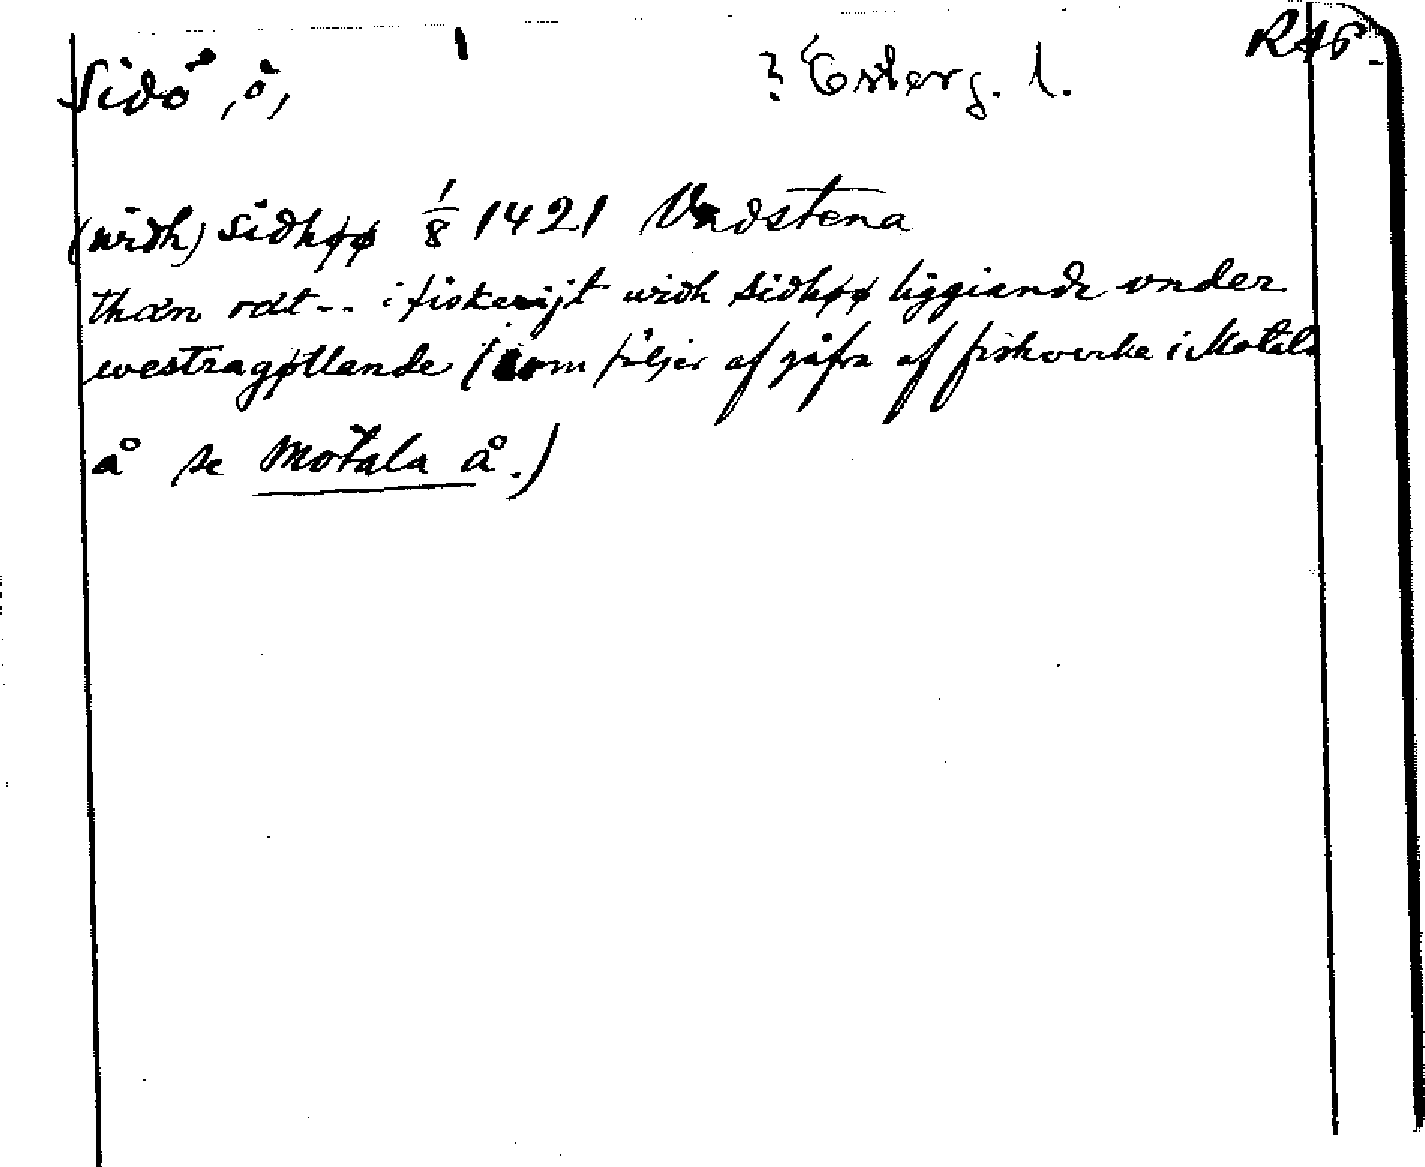 Sidö, ö, ? Österg. l. RAP.
(widh) sidhøø 1/8 1421 Vadstena
thæn ræt -- i fiskerijt widh sidhøø liggiande vnder
westragøtlande (som följer af gåfva af fiskverke i Motala
å se Motala å.)